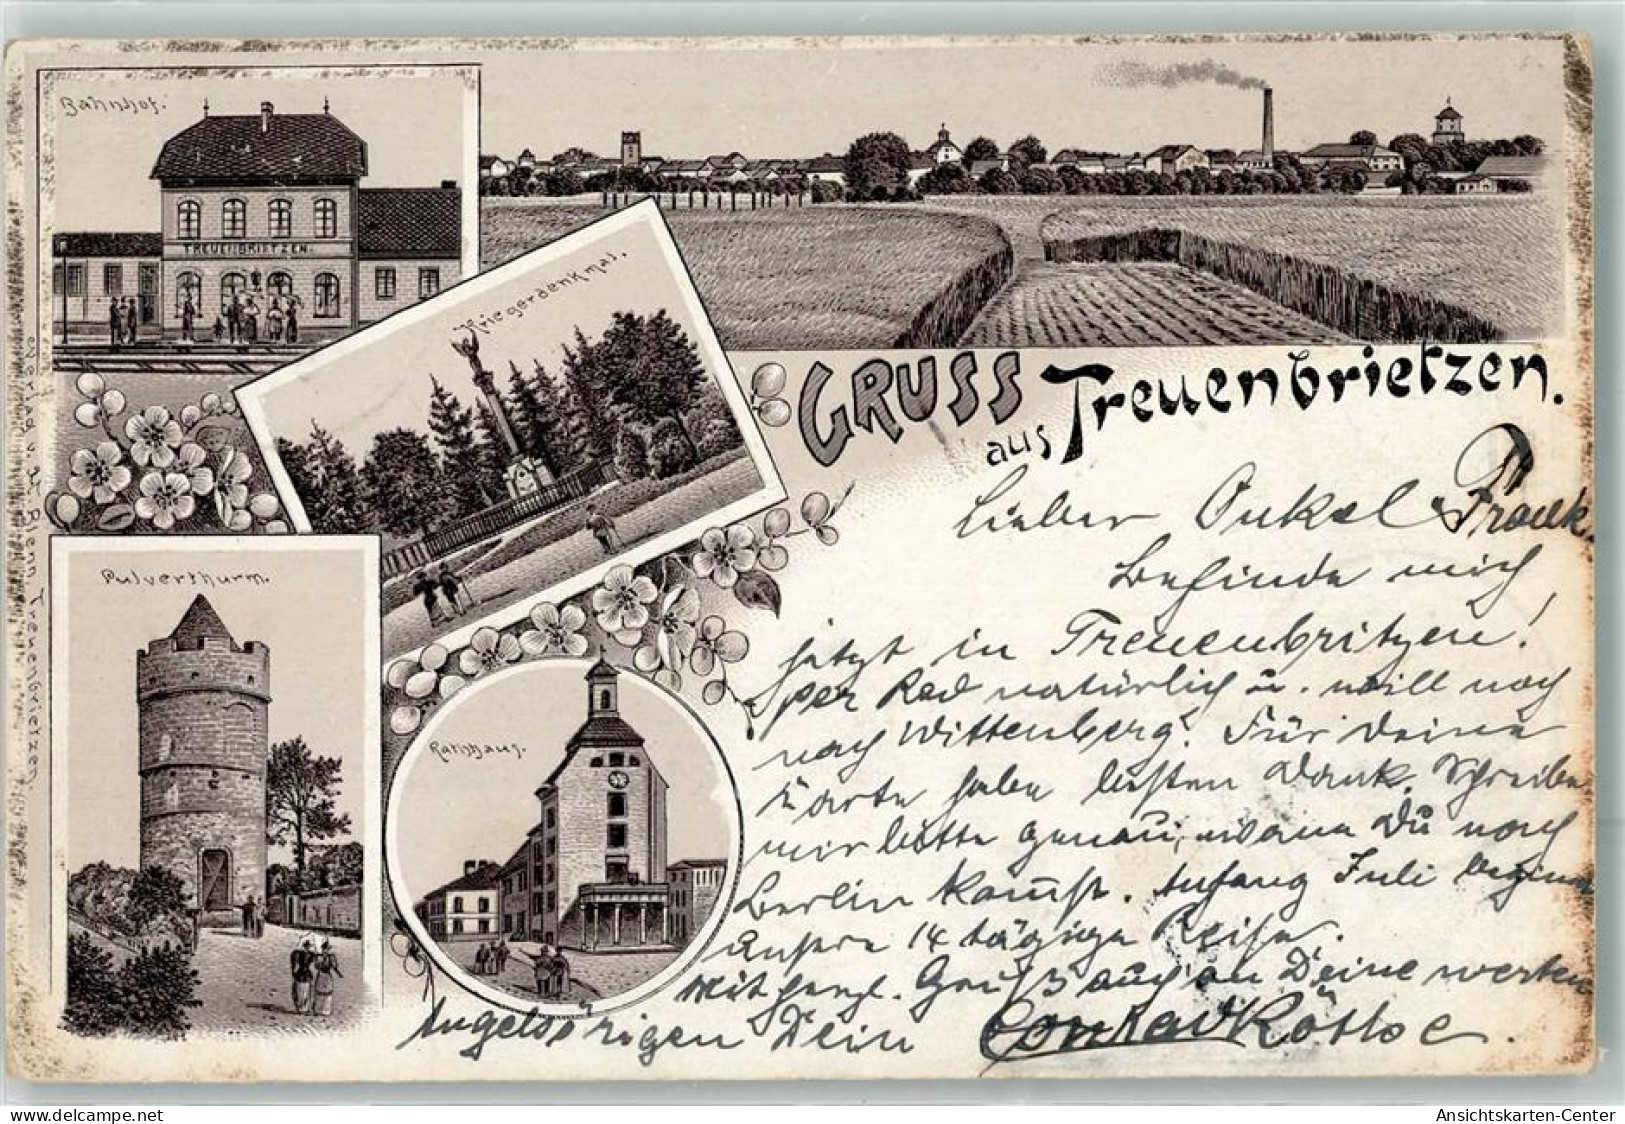 Bahnhof.
TREUENBRIETZEN.
Kriegerdenkmal.
GRUSS
aus Treuenbrietzen.
Pulverthurm.
Rathhaus.
Verlag v. Blenn Treuenbrietzen.
Lieber Onkel Frank.
Befinde mich
jetzt in Treuenbritzen!
per Rad natürlich u. will noch
nach Wittenberg. Für Deine
Karte habe besten Dank. Schreibe
mir bitte genau, wann Du nach
Berlin kommst. Anfang Juli beginnt
unsere 14 tägige Reise.
Mit herzl. Gruß auch an Deine werten
Angehörigen Dein Conrad Köthe.
Ansichtskarten-Center